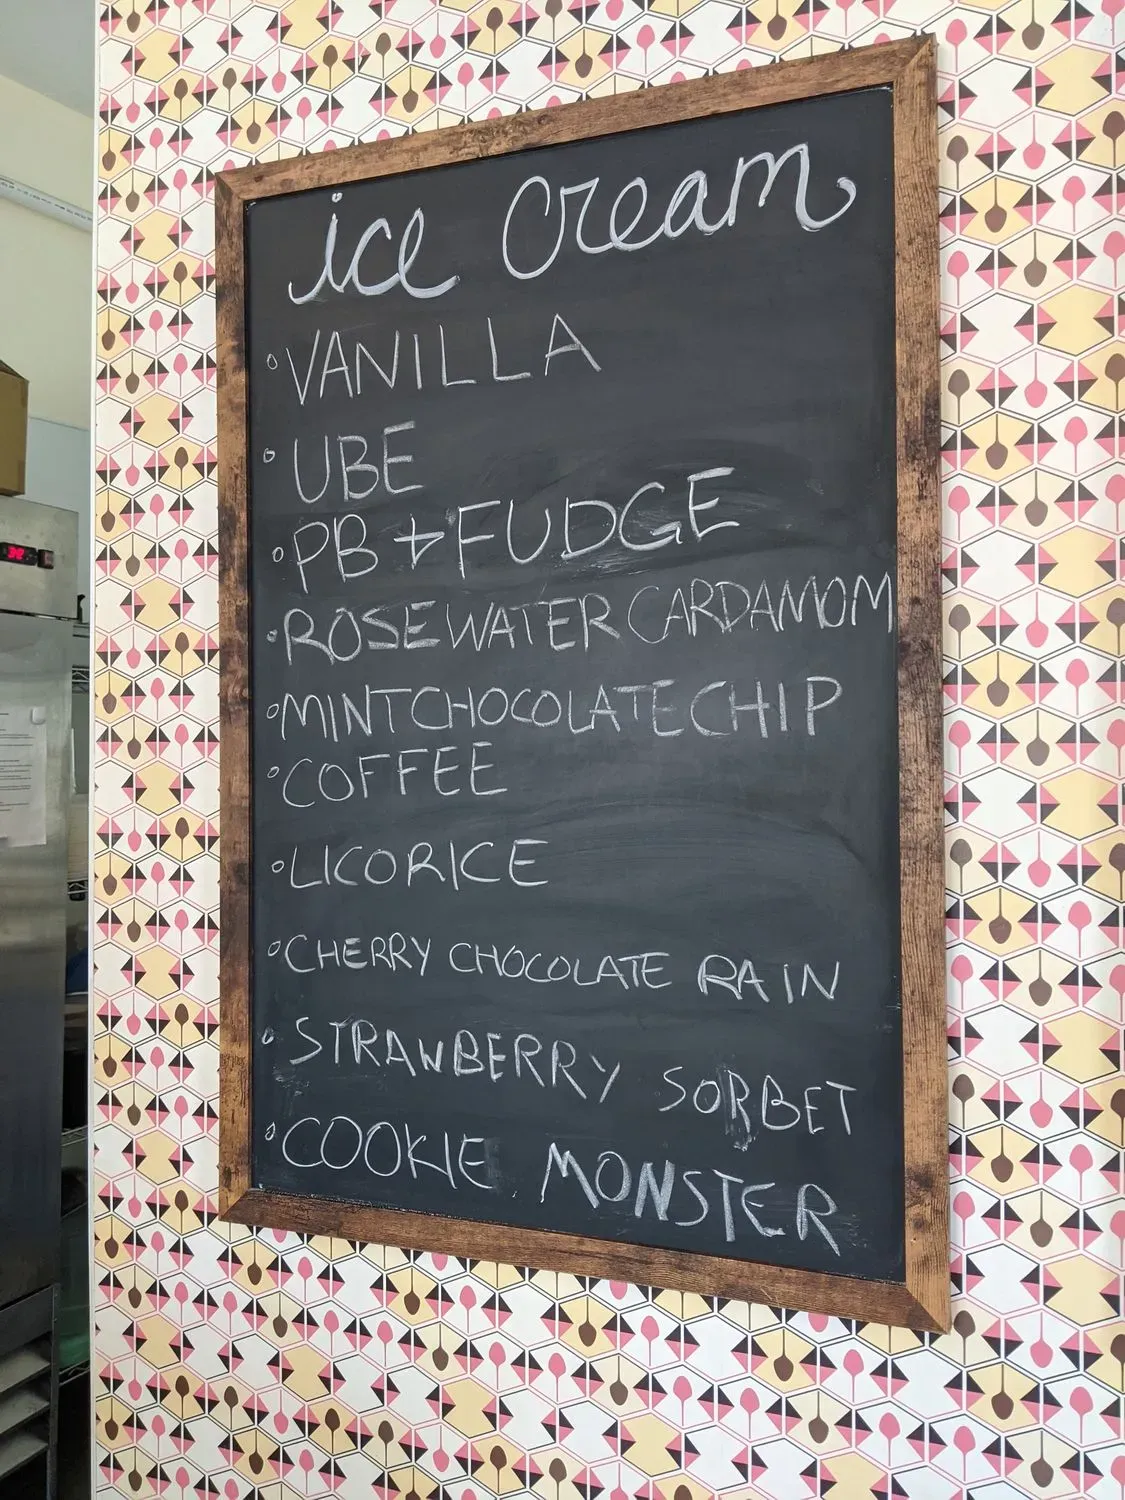 ice cream
VANILLA
UBE
PB + FUDGE
ROSEWATER CARDAMOM
MINT CHOCOLATE CHIP
COFFEE
LICORICE
CHERRY CHOCOLATE RAIN
STRAWBERRY SORBET
COOKIE MONSTER